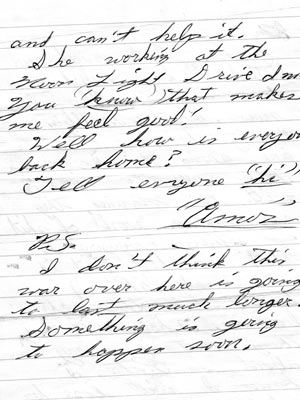 and can't help it.
She working at the
Moon Light Drive Inn
You (know) that makes
me feel good!
Well how is everyon
back home?
Tell everyone "hi"
"Amoz"
P.S.
I don't think this
war over here is going
to last much longer.
Something is going
to happen soon.